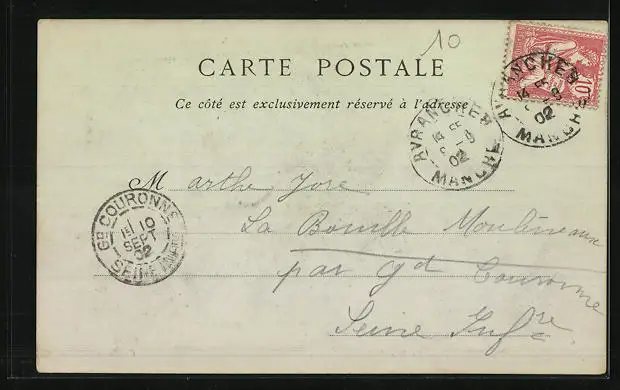 10
CARTE POSTALE
Ce côté est exclusivement réservé à l'adresse
AVRANCHES
02
MANCHE
AVRANCHES
02
MANCHE
10
Marthe Jore
La Bouille Moulineaux
par gd Couronne
Seine Infre
GD COURONNE
10
SEPT
02
SEINE INFRE